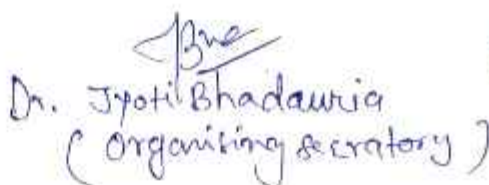 Dr. Jyoti Bhadauria
( organising secratory )